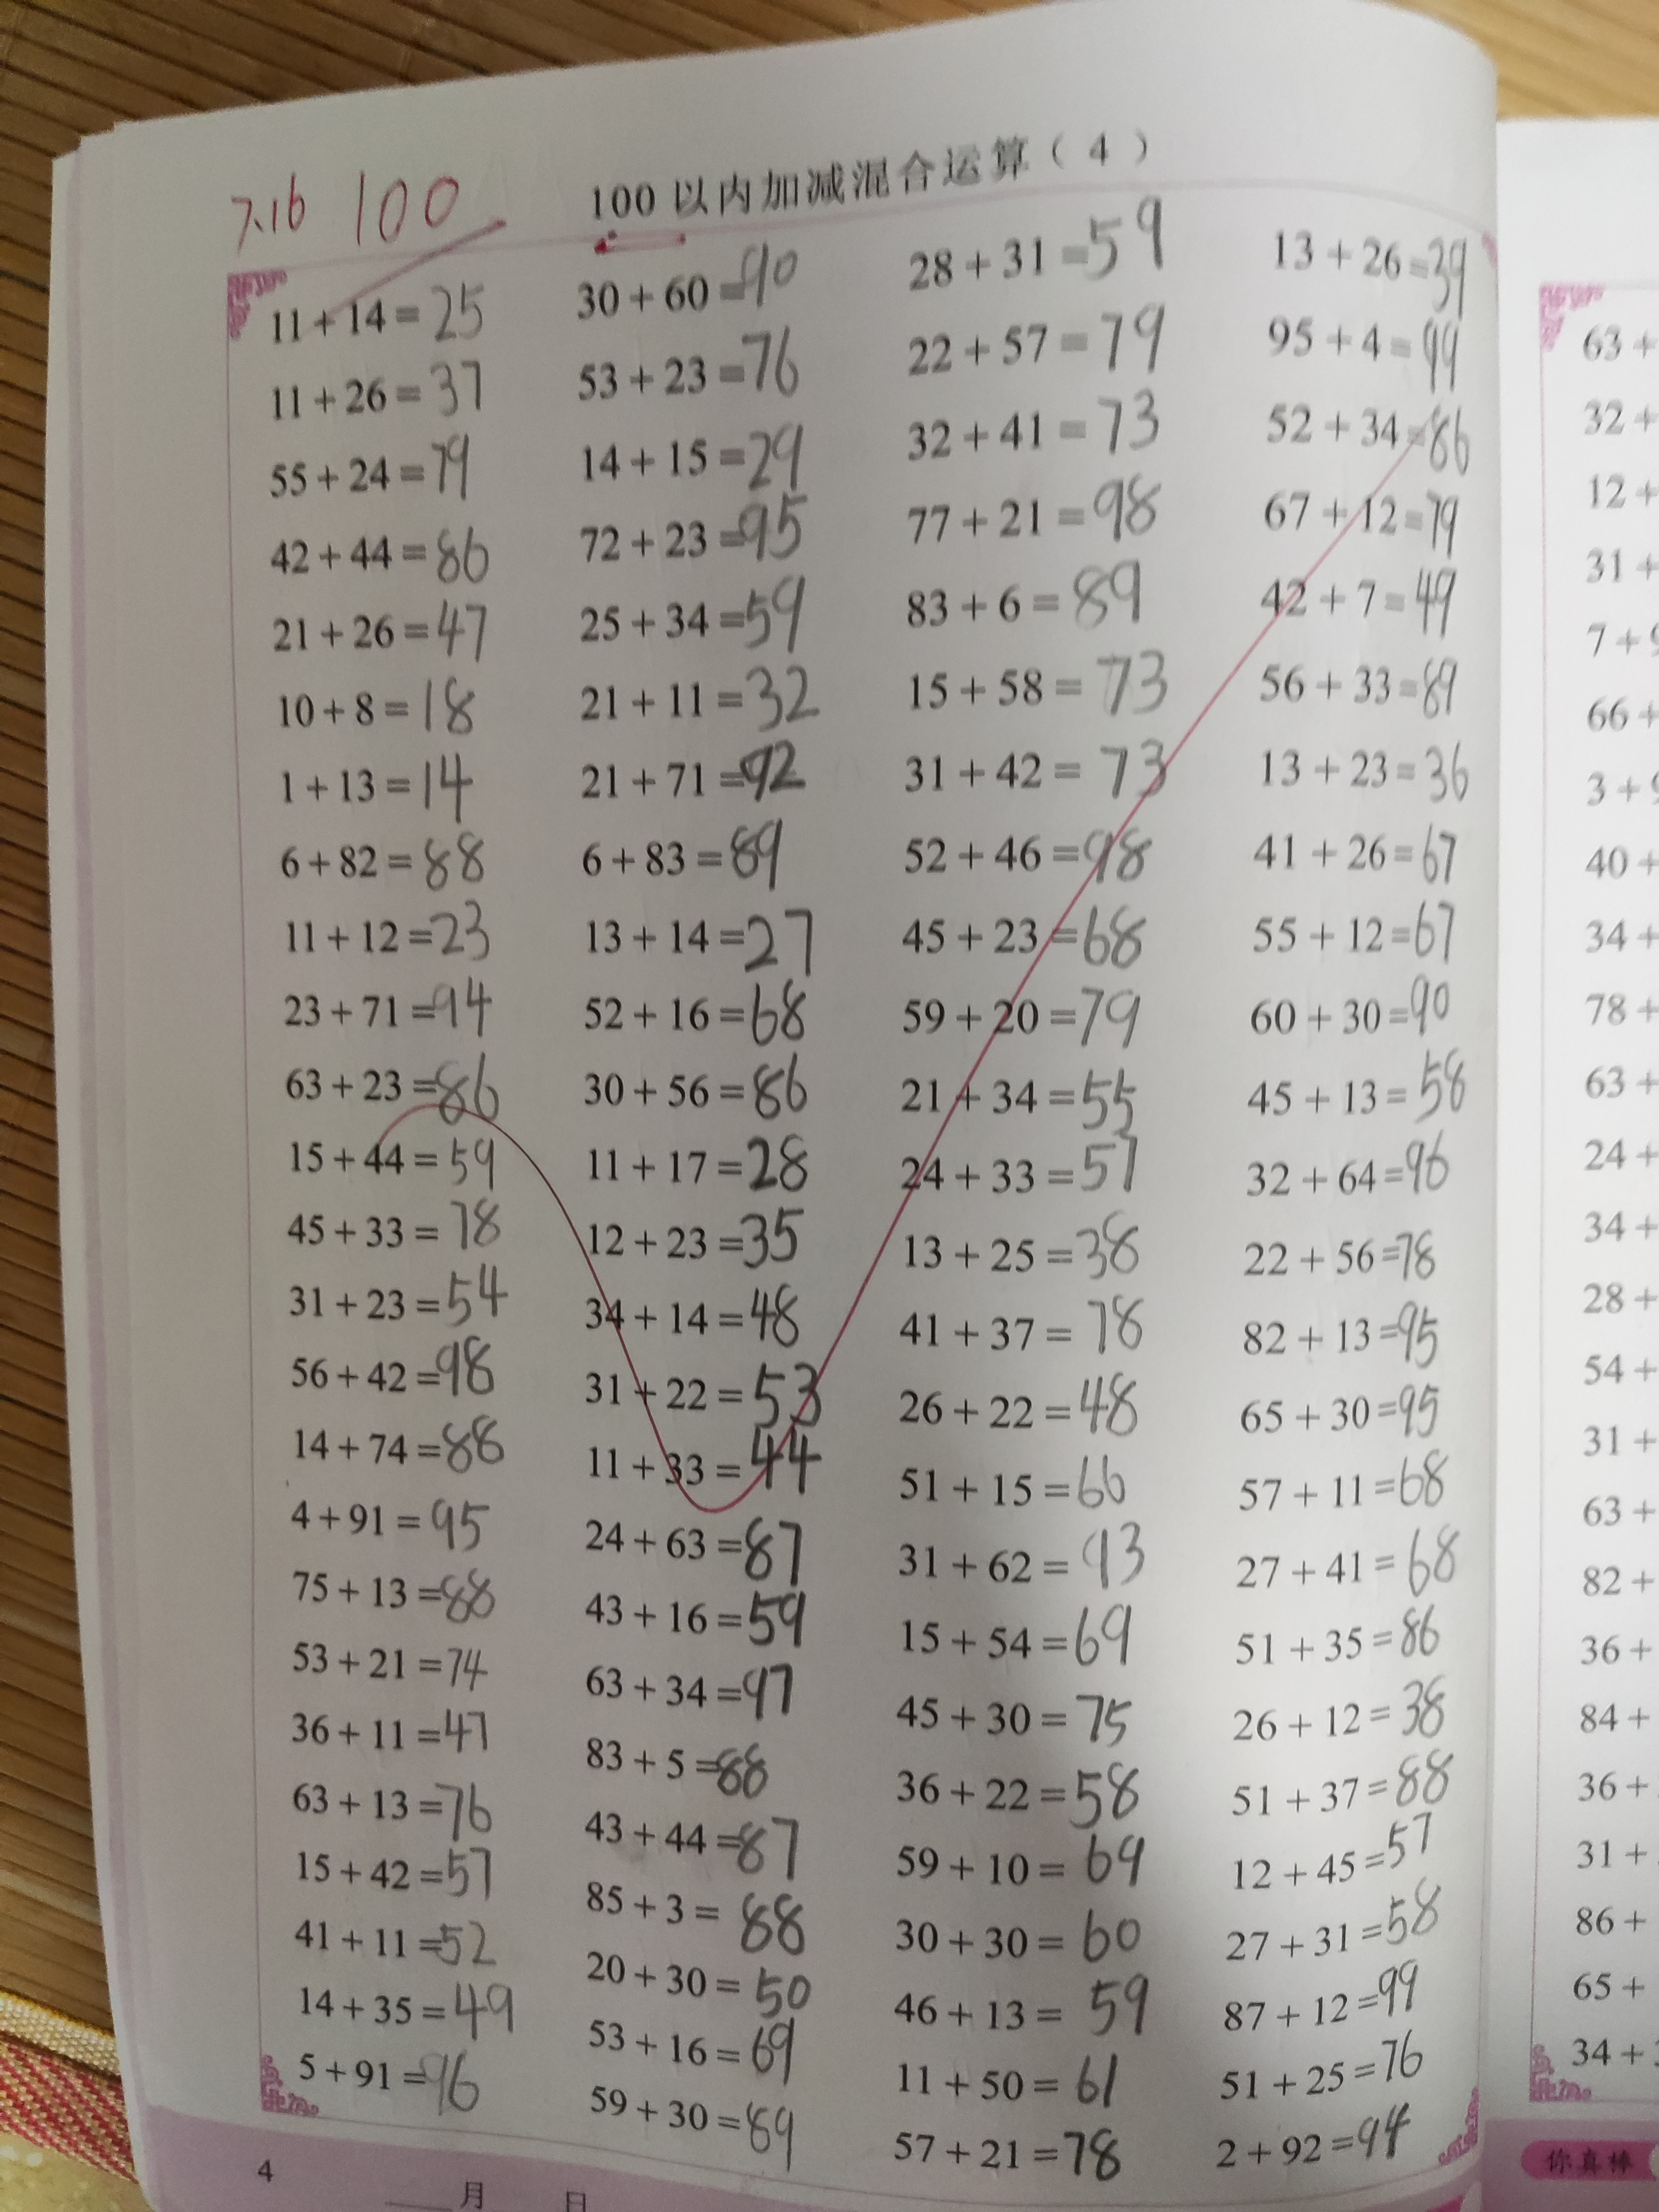 7.16 100
100以内加减混合运算（4）
11+14=25
11+26=37
55+24=79
42+44=86
21+26=47
10+8=18
1+13=14
6+82=88
11+12=23
23+71=94
63+23=86
15+44=59
45+33=78
31+23=54
56+42=98
14+74=88
4+91=95
75+13=88
53+21=74
36+11=47
63+13=76
15+42=57
41+11=52
14+35=49
5+91=96
30+60=90
53+23=76
14+15=29
72+23=95
25+34=59
21+11=32
21+71=92
6+83=89
13+14=27
52+16=68
30+56=86
11+17=28
12+23=35
34+14=48
31+22=53
11+33=44
24+63=87
43+16=59
63+34=97
83+5=88
43+44=87
85+3=88
20+30=50
53+16=69
59+30=89
28+31=59
22+57=79
32+41=73
77+21=98
83+6=89
15+58=73
31+42=73
52+46=98
45+23=68
59+20=79
21+34=55
24+33=57
13+25=38
41+37=78
26+22=48
51+15=66
31+62=93
15+54=69
45+30=75
36+22=58
59+10=69
30+30=60
46+13=59
11+50=61
57+21=78
13+26=39
95+4=99
52+34=86
67+12=79
42+7=49
56+33=89
13+23=36
41+26=67
55+12=67
60+30=90
45+13=58
32+64=96
22+56=78
82+13=95
65+30=95
57+11=68
27+41=68
51+35=86
26+12=38
51+37=88
12+45=57
27+31=58
87+12=99
51+25=76
2+92=94
4
月 日
63+
32+
12+
31+
7+9
66+
3+9
40+
34+
78+
63+
24+
34+
28+
54+
31+
63+
82+
36+
84+
36+
31+
86+
65+
34+
你真棒